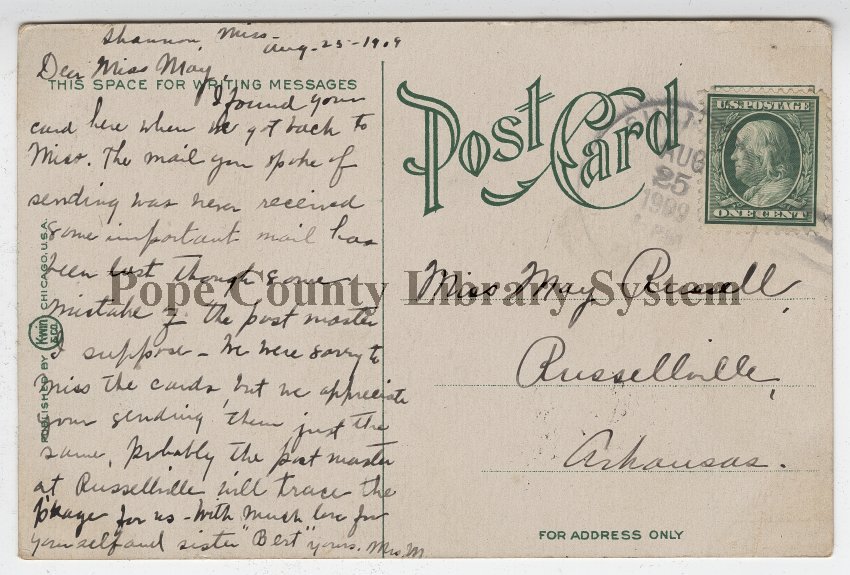 Shannon, Miss-
Aug-25-1909
Dear Miss May,
THIS SPACE FOR WRITING MESSAGES
I found your
card here when we got back to
Miss. The mail you spoke of
sending was never received
some important mail has
been lost though some
mistake of the post master
I suppose - We were sorry to
miss the cards, but we appreciate
your sending them just the
same, Probably the post master
at Russellville will trace the
for us - With much love for
yourself and sister "Bert" yours. Mrs. M.
PUBLISHED BY Kwin & Co. CHICAGO, U.S.A.
Post Card
AUG
25
1909
U.S. POSTAGE
ONE CENT
Miss May Russell,
Russellville,
Arkansas.
FOR ADDRESS ONLY
Pope County Library System